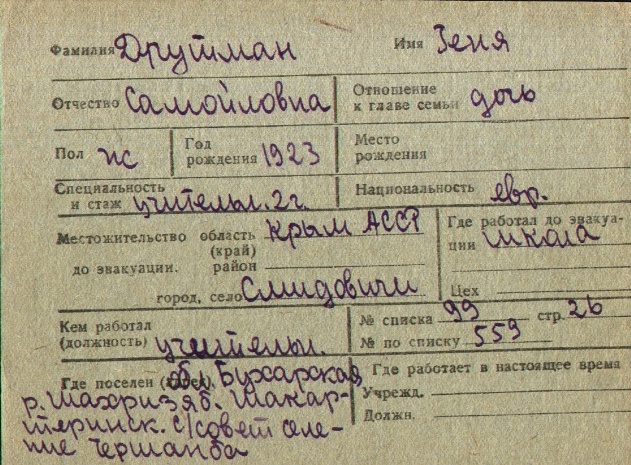 Фамилия Друтман Имя Зеня
Отчество Самойловна Отношение к главе семьи дочь
Пол ж Год рождения 1923 Место рождения
Специальность и стаж учительн. 2 г. Национальность евр.
Местожительство область Крым АССР
(край)
до эвакуации. район
город, село Смидовичи
Где работал до эвакуа-
ции школа
Цех
Кем работал
(должность) учительн.
№ списка 99 стр. 26
№ по списку 559
Где поселен обл. Бухарская
р. Шахризяб. Шакар-
теринск. с/совет селе-
ние Чершанба
Где работает в настоящее время
Учрежд.
Должн.